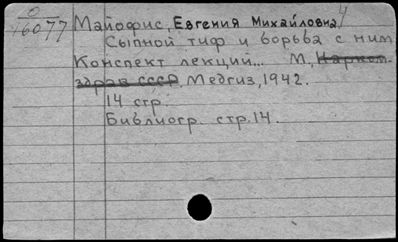 0
16077
Майофис, Евгения Михайловна
Сыпной тиф и борьба с ним
Конспект лекции... М, Нарком-
здрав СССР, Медгиз, 1942.
14 стр.
Библиогр. стр. 14.